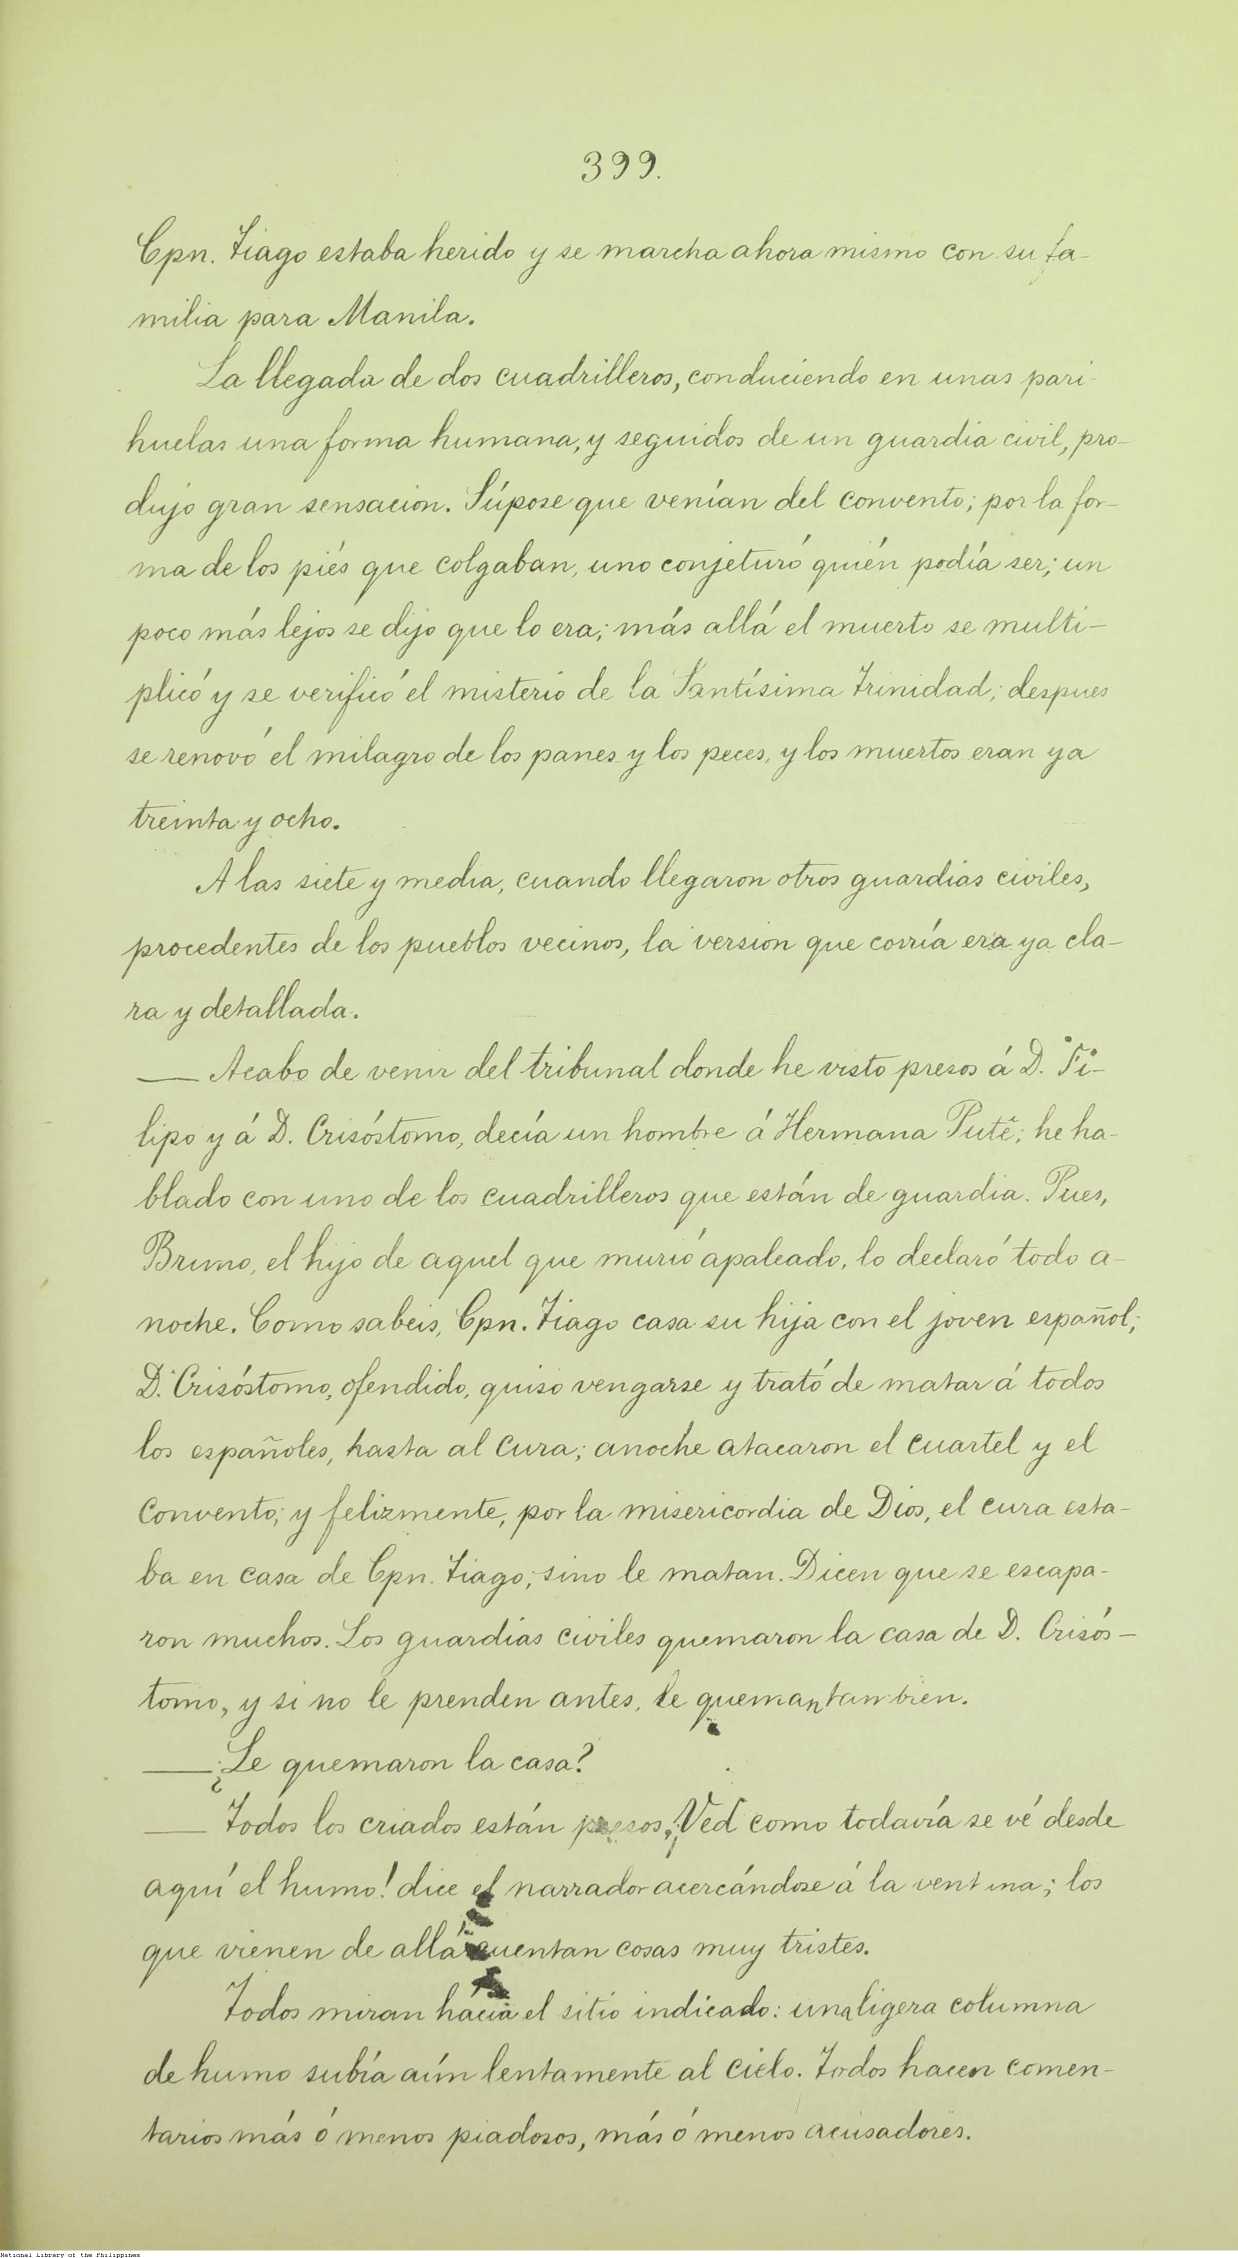 399.
Cpn. Tiago estaba herido y se marcha ahora mismo con su fa-
milia para Manila.
La llegada de dos cuadrilleros, conduciendo en unas pari-
huelas una forma humana, y seguidos de un guardia civil, pro-
dujo gran sensacion. Súpose que venían del convento; por la for-
ma de los piés que colgaban, uno conjeturó quién podía ser; un
poco más lejos se dijo que lo era; más allá el muerto se multi-
plicó y se verificó el misterio de la Santísima Trinidad; despues
se renovó el milagro de los panes y los peces, y los muertos eran ya
treinta y ocho.
A las siete y media, cuando llegaron otros guardias civiles,
procedentes de los pueblos vecinos, la version que corría era ya cla-
ra y detallada.
— Acabo de venir del tribunal donde he visto presos á D. Fi-
lipo y á D. Crisóstomo, decía un hombre á Hermana Putê; he ha-
blado con uno de los cuadrilleros que están de guardia. Pues,
Bruno, el hijo de aquel que murió apaleado, lo declaró todo a-
noche. Como sabeis, Cpn. Tiago casa su hija con el joven español;
D. Crisóstomo, ofendido, quiso vengarse y trató de matar á todos
los españoles, hasta al cura; anoche atacaron el cuartel y el
convento; y felizmente, por la misericordia de Dios, el cura esta-
ba en casa de Cpn. Tiago; sino le matan. Dicen que se escapa-
ron muchos. Los guardias civiles quemaron la casa de D. Crisós-
tomo, y si no le prenden antes, le queman tambien.
— ¿Le quemaron la casa?
— Todos los criados están presos, ¡Ved como todavía se vé desde
aquí el humo! dice el narrador acercándose á la ventana; los
que vienen de allá cuentan cosas muy tristes.
Todos miran hácia el sitio indicado: una ligera columna
de humo subía aún lentamente al cielo. Todos hacen comen-
tarios más ó menos piadosos, más ó menos acusadores.
National Library of the Philippines